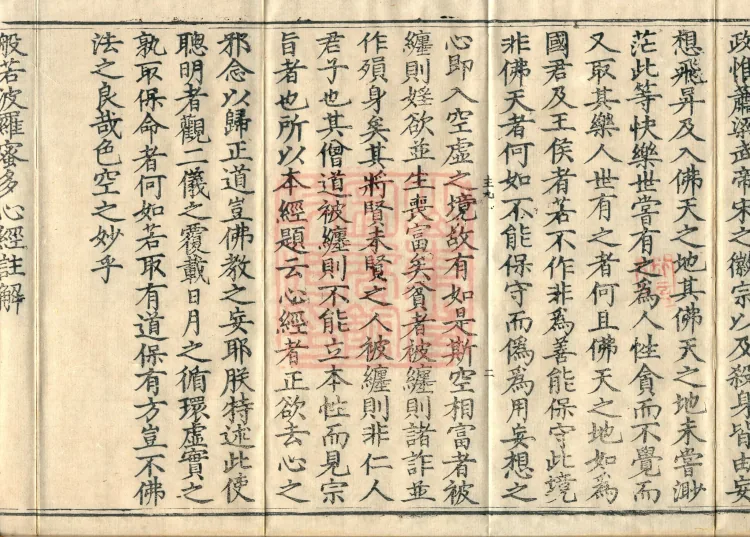 政惟蕭梁武帝宋之徽宗以及殺身皆由妄
想飛昇及入佛天之地其佛天之地未嘗渺
茫此等快樂世嘗有之爲人性貪而不覺而
又取其樂人世有之者何且佛天之地如爲
國君及王侯者若不作非爲善能保守此境
非佛天者何如不能保守而僞爲用妄想之
二
心即入空虛之境故有如是斯空相富者被
纏則婬欲並生喪富矣貧者被纏則諸詐並
作殞身矣其將賢未賢之人被纏則非仁人
君子也其僧道被纏則不能立本性而見宗
旨者也所以本經題云心經者正欲去心之
邪念以歸正道豈佛教之妄耶朕特述此使
聰明者觀二儀之覆載日月之循環虛實之
孰取保命者何如若取有道保有方豈不佛
法之良哉色空之妙乎
般若波羅蜜多心經註解